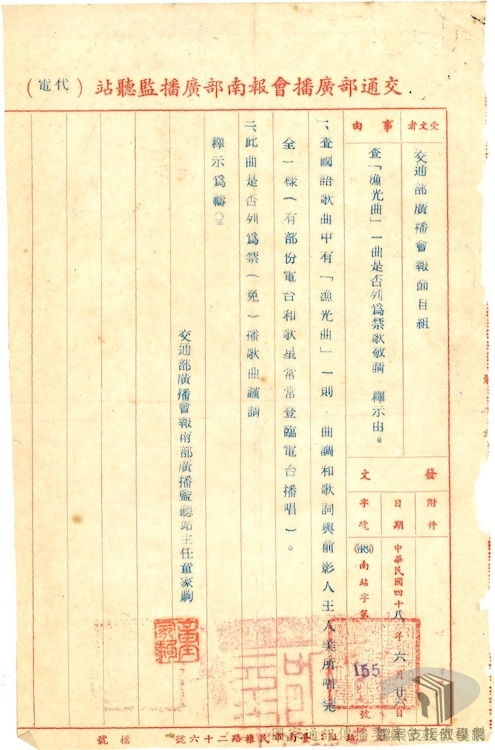 交通部廣播會報南部廣播監聽站（代電）
受文者
交通部廣播會報節目組
事由
查「漁光曲」一曲是否列為禁歌敬請　釋示由。
發文
附件
日期
中華民國四十八年六月廿六日
字號
(48)南站字第155號
一、查國語歌曲中有「漁光曲」一則，曲調和歌詞與前影人王人美所唱完
全一樣（有部份電台和歌星常常登臨電台播唱）。
二、此曲是否列為禁（免）播歌曲謹請
釋示為禱。
交通部廣播會報南部廣播監聽站主任童家駒
站址：臺南市民權路二十六號
檔號
檔案支援教學網